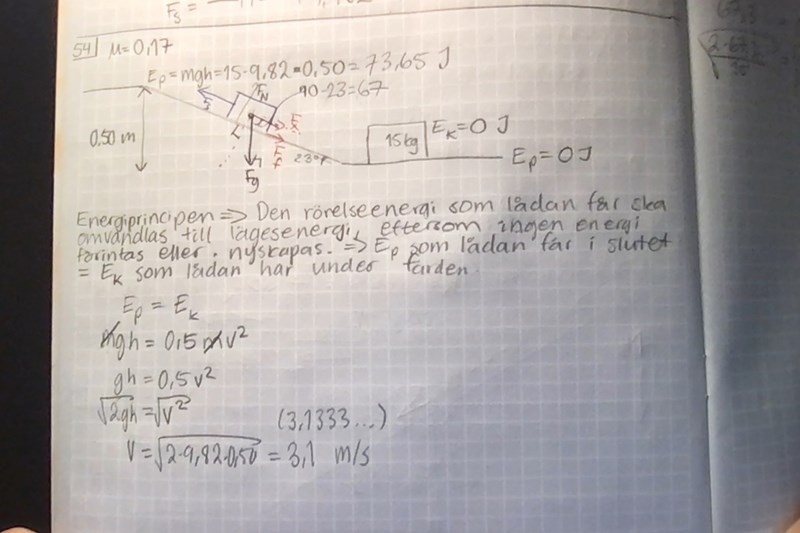 Fs =
54 μ=0,17
Ep=mgh=15·9,82·0,50=73,65 J
FN
90-23=67
0,50 m
15kg
Ek=0 J
23°
Ep=0J
Fg
Energiprincipen => Den rörelseenergi som lådan får ska
omvandlas till lägesenergi, eftersom ingen energi
förintas eller nyskapas. => Ep som lådan får i slutet
= Ek som lådan har under färden.
Ep = Ek
mgh = 0,5 mv²
gh = 0,5 v²
√2gh = √v²
(3,1333...)
V=√2·9,82·0,50 = 3,1 m/s